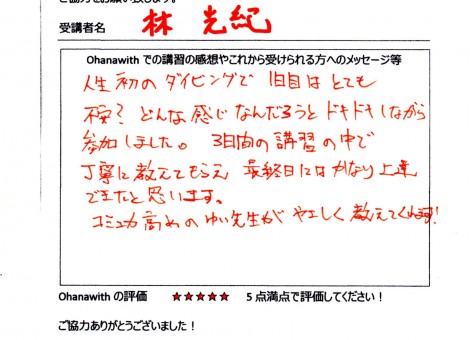 受講者名 林 光紀
Ohanawith での講習の感想やこれから受けられる方へのメッセージ等
人生初のダイビングで 1日目はとても
不安? どんな感じなんだろうとドキドキしながら
参加しました。 3日間の講習の中で
丁寧に教えてもらえ 最終日にはかなり上達
できたと思います。
コミュ力高めのゆい先生が やさしく教えてくれます!
Ohanawith の評価 ★★★★★ 5 点満点で評価してください!
ご協力ありがとうございました!